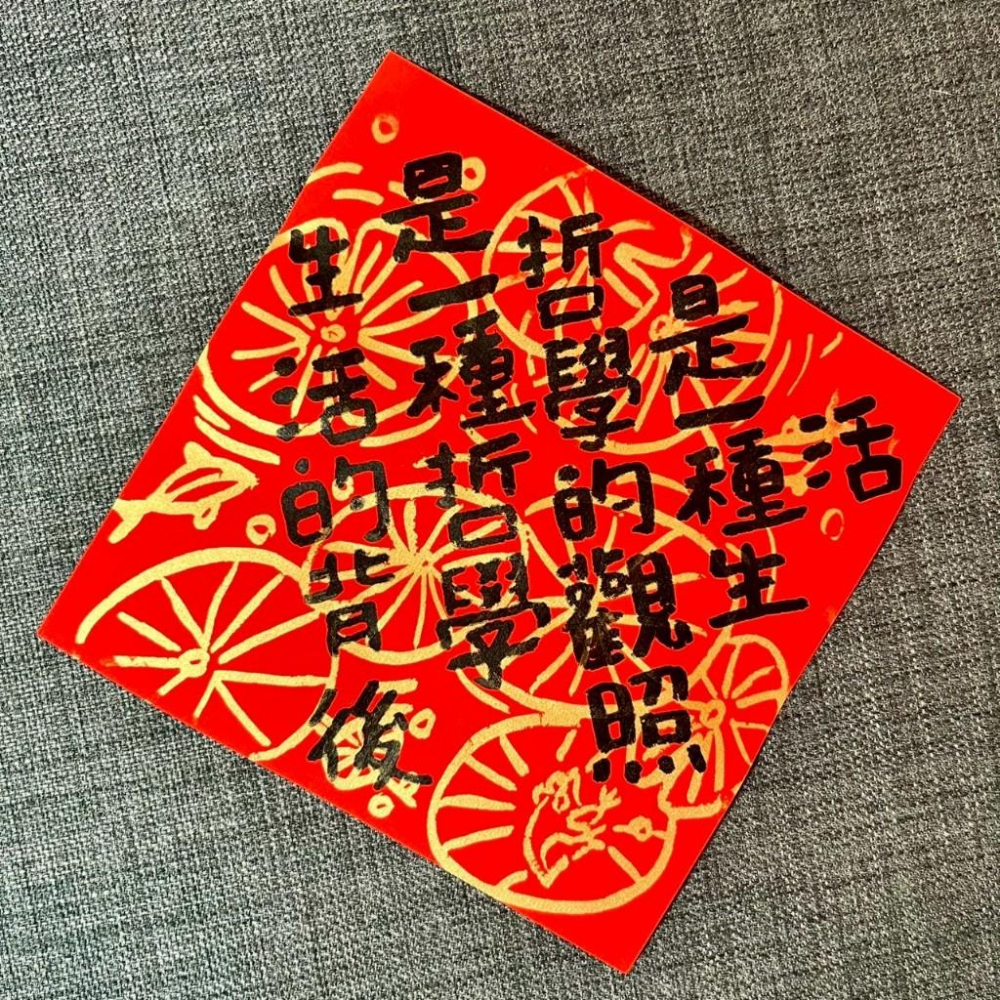 生活的背後
是一種哲學
哲學的觀照
是一種生
活